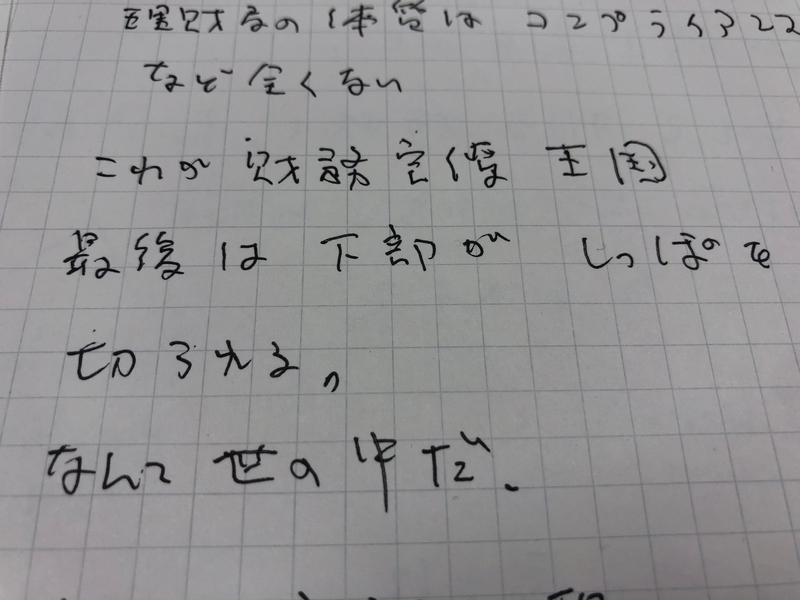 の体質はコンプライアンス
など全くない
これが 財務官僚 王国
最後は 下部が しっぽを
切られる。
なんて 世の中だ。